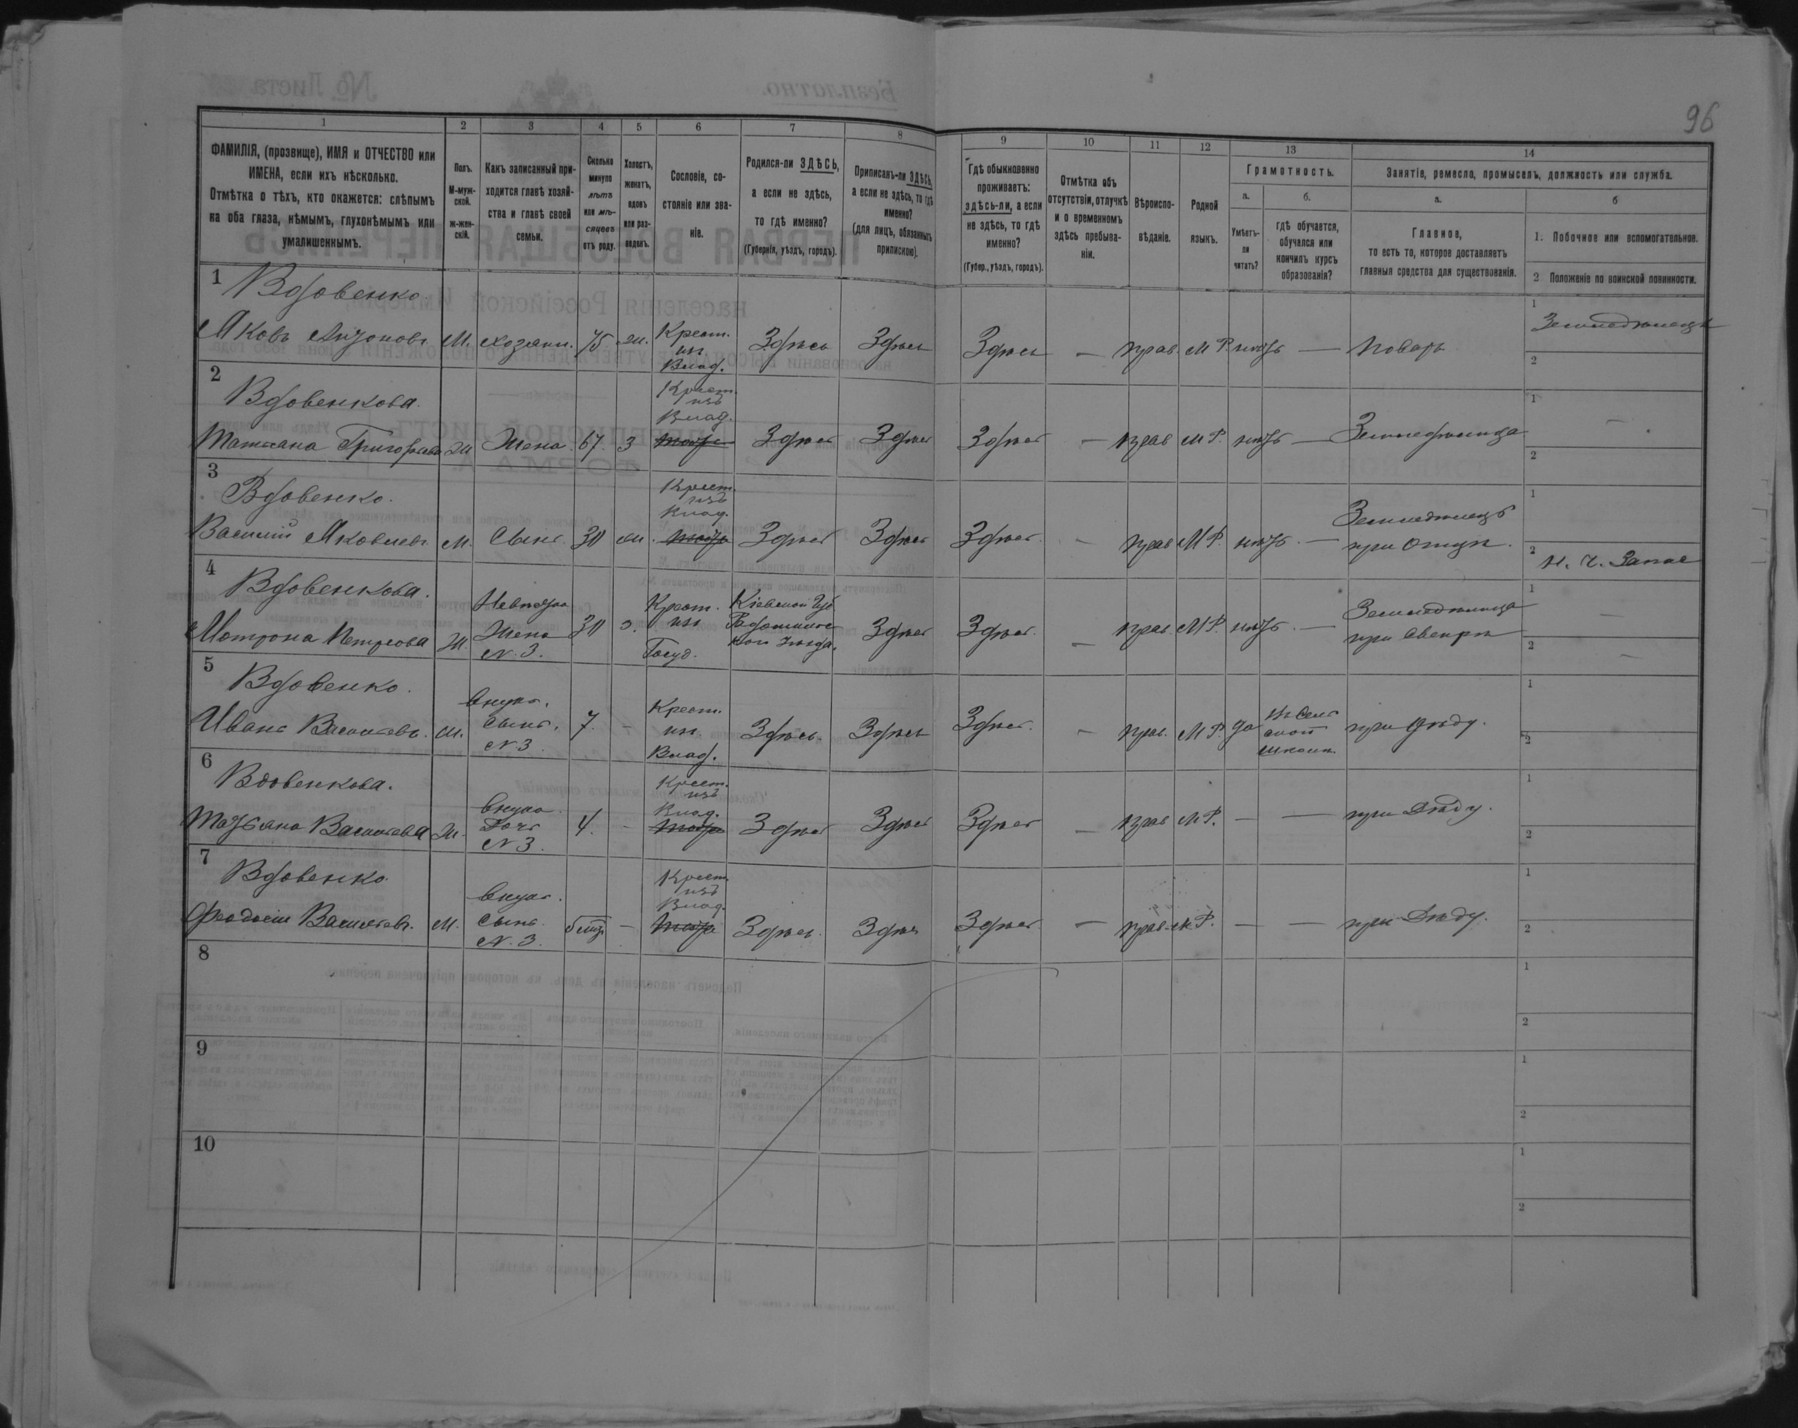 96
1 2 3 4 5 6 7 8 9 10 11 12 13 14
ФАМИЛІЯ, (прозвище), ИМЯ и ОТЧЕСТВО или
ИМЕНА, если ихъ нѣсколько.
Отмѣтка о тѣхъ, кто окажется: слѣпымъ
на оба глаза, нѣмымъ, глухонѣмымъ или
умалишеннымъ.
Полъ.
М-муж-
ской.
Ж-жен-
скій.
Какъ записанный при-
ходится главѣ хозяй-
ства и главѣ своей
семьи.
Сколько
минуло
лѣтъ
или мѣ-
сяцевъ
отъ роду.
Холостъ,
женатъ,
вдовъ
или раз-
веденъ.
Сословіе, со-
стояніе или зва-
ніе.
Родился-ли ЗДѢСЬ,
а если не здѣсь,
то гдѣ именно?
(Губернія, уѣздъ, городъ).
Приписанъ-ли ЗДѢСЬ,
а если не здѣсь, то гдѣ
именно?
(для лицъ, обязанныхъ
припискою).
Гдѣ обыкновенно
проживаетъ:
здѣсь-ли, а если
не здѣсь, то гдѣ
именно?
(Губер., уѣздъ, городъ).
Отмѣтка объ
отсутствіи, отлучкѣ
и о временномъ
здѣсь пребыва-
ніи.
Вѣроиспо-
вѣданіе.
Родной
языкъ.
Грамотность.
а.
Умѣетъ-
ли
читать?
б.
гдѣ обучается,
обучался или
кончилъ курсъ
образованія?
Занятіе, ремесло, промыселъ, должность или служба.
а.
Главное,
то есть то, которое доставляетъ
главныя средства для существованія.
б
1. Побочное или вспомогательное.
2 Положеніе по воинской повинности.
1 Вдовенко
Яковъ Антоновъ М. хозяин. 75 ж. Крест. Здѣсь Здѣсь Здѣсь — прав. М Р. нѣтъ — поваръ 1 Земледѣлецъ
из
Влад. 2
2 Вдовенкова. Крест.
изъ
Влад. 1 —
Татьяна Григорьева Ж Жена 67. З Здѣсь Здѣсь Здѣсь — прав М Р. нѣтъ — Земледѣлица
2
3 Вдовенко. Крест.
изъ
Влад. 1
Василій Яковлевъ М. Сынъ 30 ж. Здѣсь Здѣсь Здѣсь — прав М Р. нѣтъ. — Земледѣлецъ
при Отцѣ. 2 Н. Ч. Запас
4 Вдовенкова. Невѣстка Крест. Кіевской Губ 1 —
Мотрона Петрова Ж. Жена 30 з. из Здѣсь Здѣсь — прав М Р. нѣтъ — Земледѣлица
N. 3. Госуд. кого Уѣзда. при Свекрѣ 2 —
5 Вдовенко. внукъ. Крест. 1
Иванъ Васильевъ. М. Сынъ. 7. — из. Здѣсь. Здѣсь Здѣсь — прав. М Р. да Въ Сель
ской
школѣ при Дѣду.
N 3 Влад. 2
6 Вдовенкова. Крест.
изъ 1
Татьяна Васильева Ж. Внука
Дочь 4. — Влад. Здѣсь Здѣсь Здѣсь — прав М Р. — — при Дѣду.
N 3. 2
7 Вдовенко Внукъ. Крест
изъ 1
Феодосій Васильевъ. М. Сынъ — Влад. Здѣсь. Здѣсь Здѣсь — прав. М Р. — — при Дѣду.
N. 3. 2
8 1
2
9 1
2
10 1
2